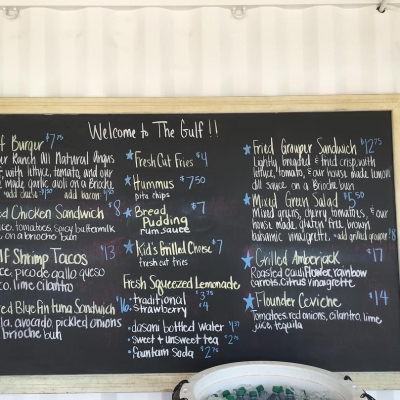 Welcome to The Gulf!!
f Burger $7.75
er Ranch All Natural Angus
e, with lettuce, tomato, and our
e made garlic aioli on a Brioche
add cheese $1.50 add bacon $.75
ed Chicken Sandwich $8
ce, tomatoes, spicy buttermilk
on a brioche bun
lf Shrimp Tacos $13
ce, pico de gallo queso
co, lime cilantro
red Blue Fin tuna Sandwich $16.
la, avocado, pickled onions
brioche bun
★ Fresh Cut Fries $4
★ Hummus $7.50
pita chips
★ Bread Pudding $7
rum sauce
★ Kid's Grilled Cheese $7
fresh cut fries
Fresh Squeezed Lemonade
• traditional $3.75
• strawberry $4
• dasani bottled water
• sweet + unsweet tea $2.75
• fountain soda $2.75
★ Fried Grouper Sandwich $12.75
Lightly breaded & fried crisp, with
lettuce, tomato, & our house made lemon
dill sauce on a Brioche bun
★ Mixed Green Salad $6.50
Mixed greens, cherry tomatoes, & our
house made gluten free brown
balsamic vinaigrette. • add grilled grouper $8
★ Grilled Amberjack $17
Roasted cauliflower, rainbow
carrots, citrus vinaigrette
★ Flounder Ceviche $14
Tomatoes, red onions, cilantro, lime
juice, tequila